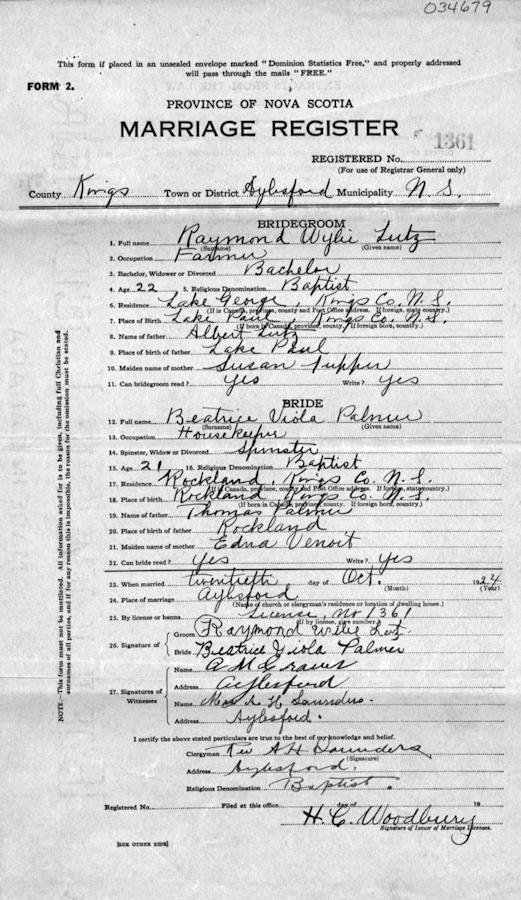 034679
This form if placed in an unsealed envelope marked "Dominion Statistics Free," and properly addressed
will pass through the mails "FREE."
FORM 2.
PROVINCE OF NOVA SCOTIA
MARRIAGE REGISTER
1361
REGISTERED No.
(For use of Registrar General only)
County Kings Town or District Aylesford Municipality N. S.
BRIDEGROOM
1. Full name Raymond Wylie Lutz
(Surname) (Given name)
2. Occupation Farmer
3. Bachelor, Widower or Divorced Bachelor
4. Age 22 5. Religious Denomination Baptist
6. Residence Lake George, Kings Co. N. S.
(If in Canada, province, county and Post Office address. If foreign, state country)
7. Place of Birth Lake Paul, Kings Co. N. S.
(If born in Canada, province, county. If foreign born, country.)
8. Name of father Albert Lutz
9. Place of birth of father Lake Paul
10. Maiden name of mother Susan Tupper
11. Can bridegroom read? Yes Write? Yes
BRIDE
12. Full name Beatrice Viola Palmer
(Surname) (Given name)
13. Occupation Housekeeper
14. Spinster, Widow or Divorced Spinster
15. Age 21 16. Religious Denomination Baptist
17. Residence Rockland, Kings Co. N. S.
(If in Canada, province, county and Post Office address. If foreign, state country)
18. Place of birth Rockland Kings Co. N. S.
(If born in Canada, province, county. If foreign born, country.)
19. Name of father Thomas Palmer
20. Place of birth of father Rockland
21. Maiden name of mother Edna Venoit
22. Can bride read? Yes Write? Yes
23. When married twentieth day of Oct. 1924
(Month) (Year)
24. Place of marriage Aylesford
(Name of church or clergyman's residence or location of dwelling house.)
25. By license or banns License No 1361
(If by license, give number.)
26. Signature of Groom Raymond Wylie Lutz
Bride Beatrice Viola Palmer
27. Signatures of Witnesses
Name A M Graves
Address Aylesford
Name Mrs A H Saunders.
Address Aylesford.
I certify the above stated particulars are true to the best of my knowledge and belief.
Clergyman Rev A H Saunders
(Signature)
Address Aylesford.
Religious Denomination Baptist.
Registered No. Filed at this office day of 19
H. C. Woodbury
Signature of Issuer of Marriage Licenses.
[SEE OTHER SIDE]
NOTE.—This form must not be mutilated. All information asked for is to be given, including full Christian and
surnames of all parties, and if for any reason this is impossible, the reason for the omission must be stated.